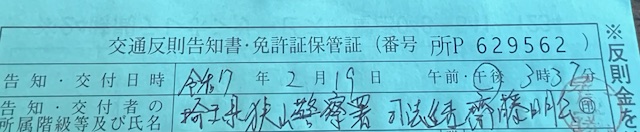 交通反則告知書・免許証保管証（番号 所P 629562）
告知・交付日時 令和7年2月19日 午前・午後3時37分
告知・交付者の 埼玉県狭山警察署 司法巡査 齊藤
所属階級等及び氏名 印
※反則金を